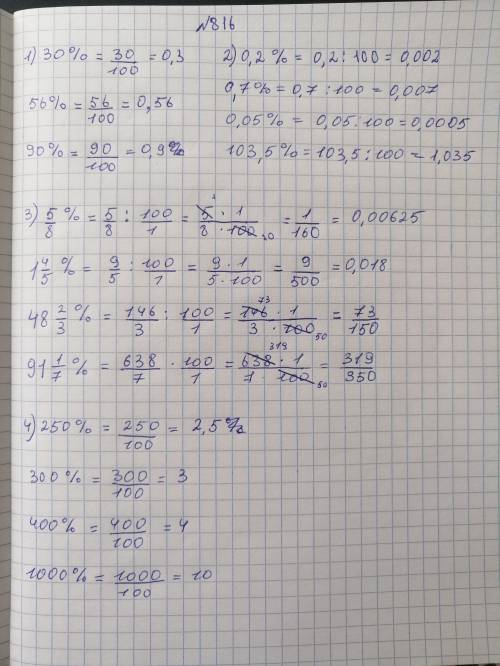 №816
1) 30% = 30/100 = 0,3 2) 0,2% = 0,2 : 100 = 0,002
0,7% = 0,7 : 100 = 0,007
56% = 56/100 = 0,56
0,05% = 0,05 : 100 = 0,0005
90% = 90/100 = 0,9% 103,5% = 103,5 : 100 = 1,035
3) 5/8 % = 5/8 : 100/1 = 5 · 1/8 · 100 20 = 1/160 = 0,00625
1 4/5 % = 9/5 : 100/1 = 9 · 1/5 · 100 = 9/500 = 0,018
48 2/3 % = 146/3 : 100/1 = 146 73 · 1/3 · 100 50 = 73/150
91 1/7 % = 638/7 · 100/1 = 638 319 · 1/7 · 100 50 = 319/350
4) 250% = 250/100 = 2,5%
300% = 300/100 = 3
400% = 400/100 = 4
1000% = 1000/100 = 10